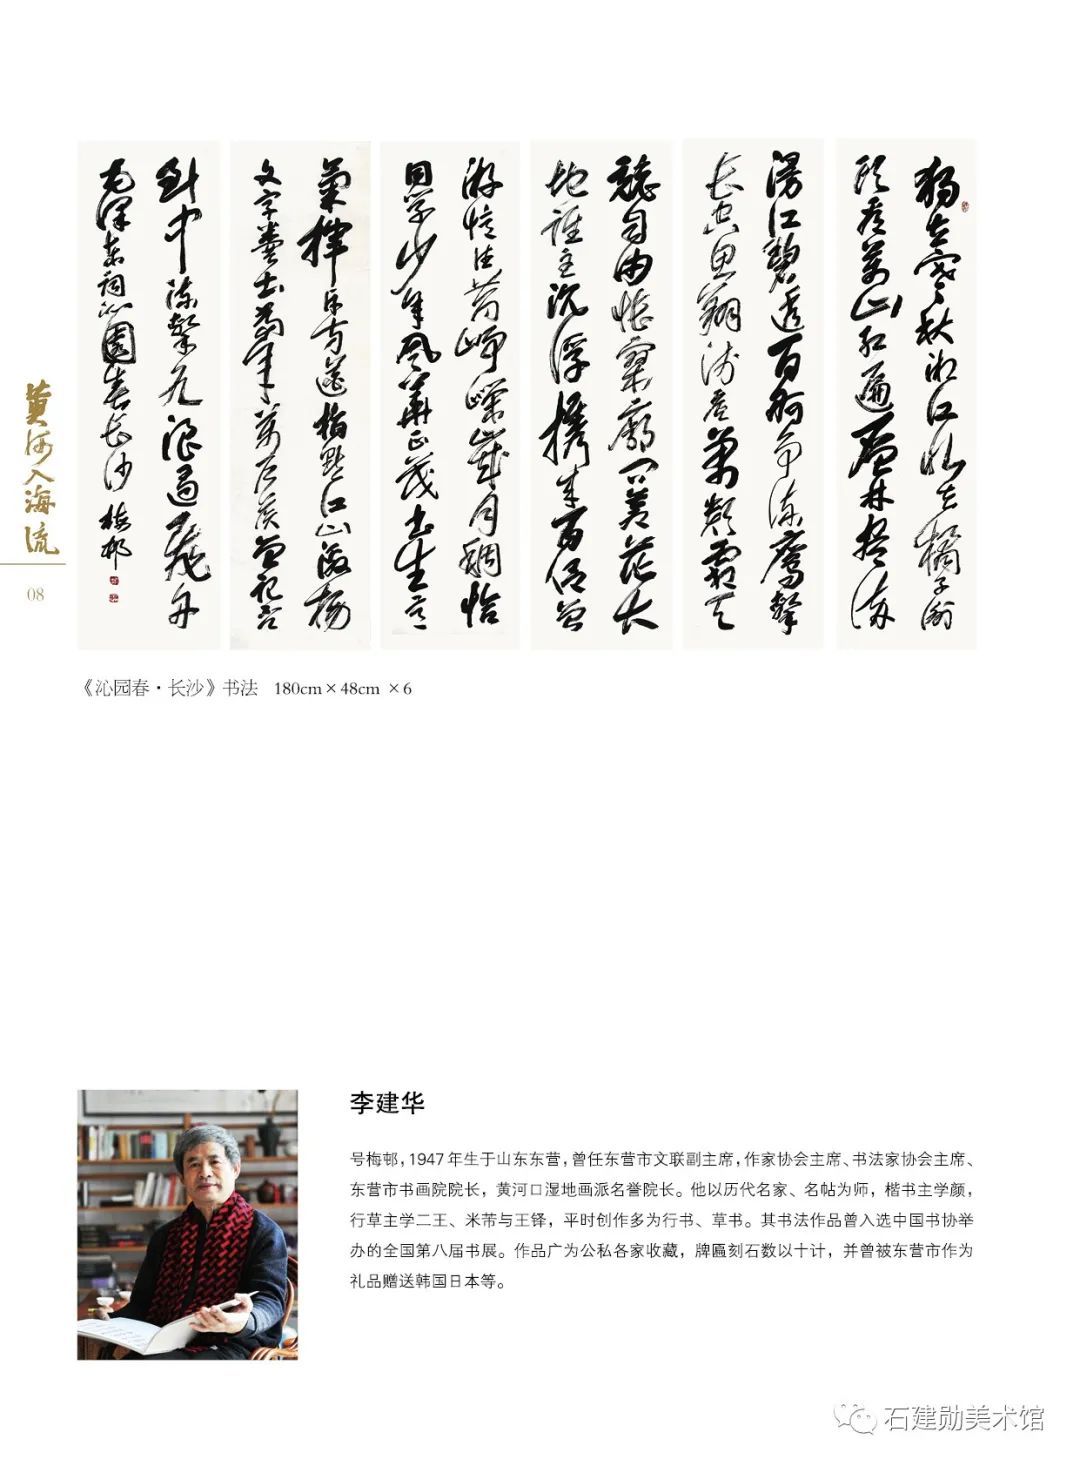 黄河入海流
08
獨立寒秋湘江北去橘子洲
頭看萬山紅遍層林盡染
漫江碧透百舸争流鷹擊
長空魚翔淺底萬類霜天
競自由悵寥廓問蒼茫大
地誰主沉浮攜來百侣曾
游憶往昔崢嶸歲月稠恰
同學少年風華正茂書生意
氣揮斥方遒指點江山激揚
文字糞土當年萬户侯曾記否
到中流擊水浪遏飛舟
毛澤東詞沁園春長沙 梅邨
《沁园春·长沙》书法 180cm×48cm ×6
李建华
号梅邨，1947年生于山东东营，曾任东营市文联副主席，作家协会主席、书法家协会主席、
东营市书画院院长，黄河口湿地画派名誉院长。他以历代名家、名帖为师，楷书主学颜，
行草主学二王、米芾与王铎，平时创作多为行书、草书。其书法作品曾入选中国书协举
办的全国第八届书展。作品广为公私各家收藏，牌匾刻石数以十计，并曾被东营市作为
礼品赠送韩国日本等。
石建勋美术馆